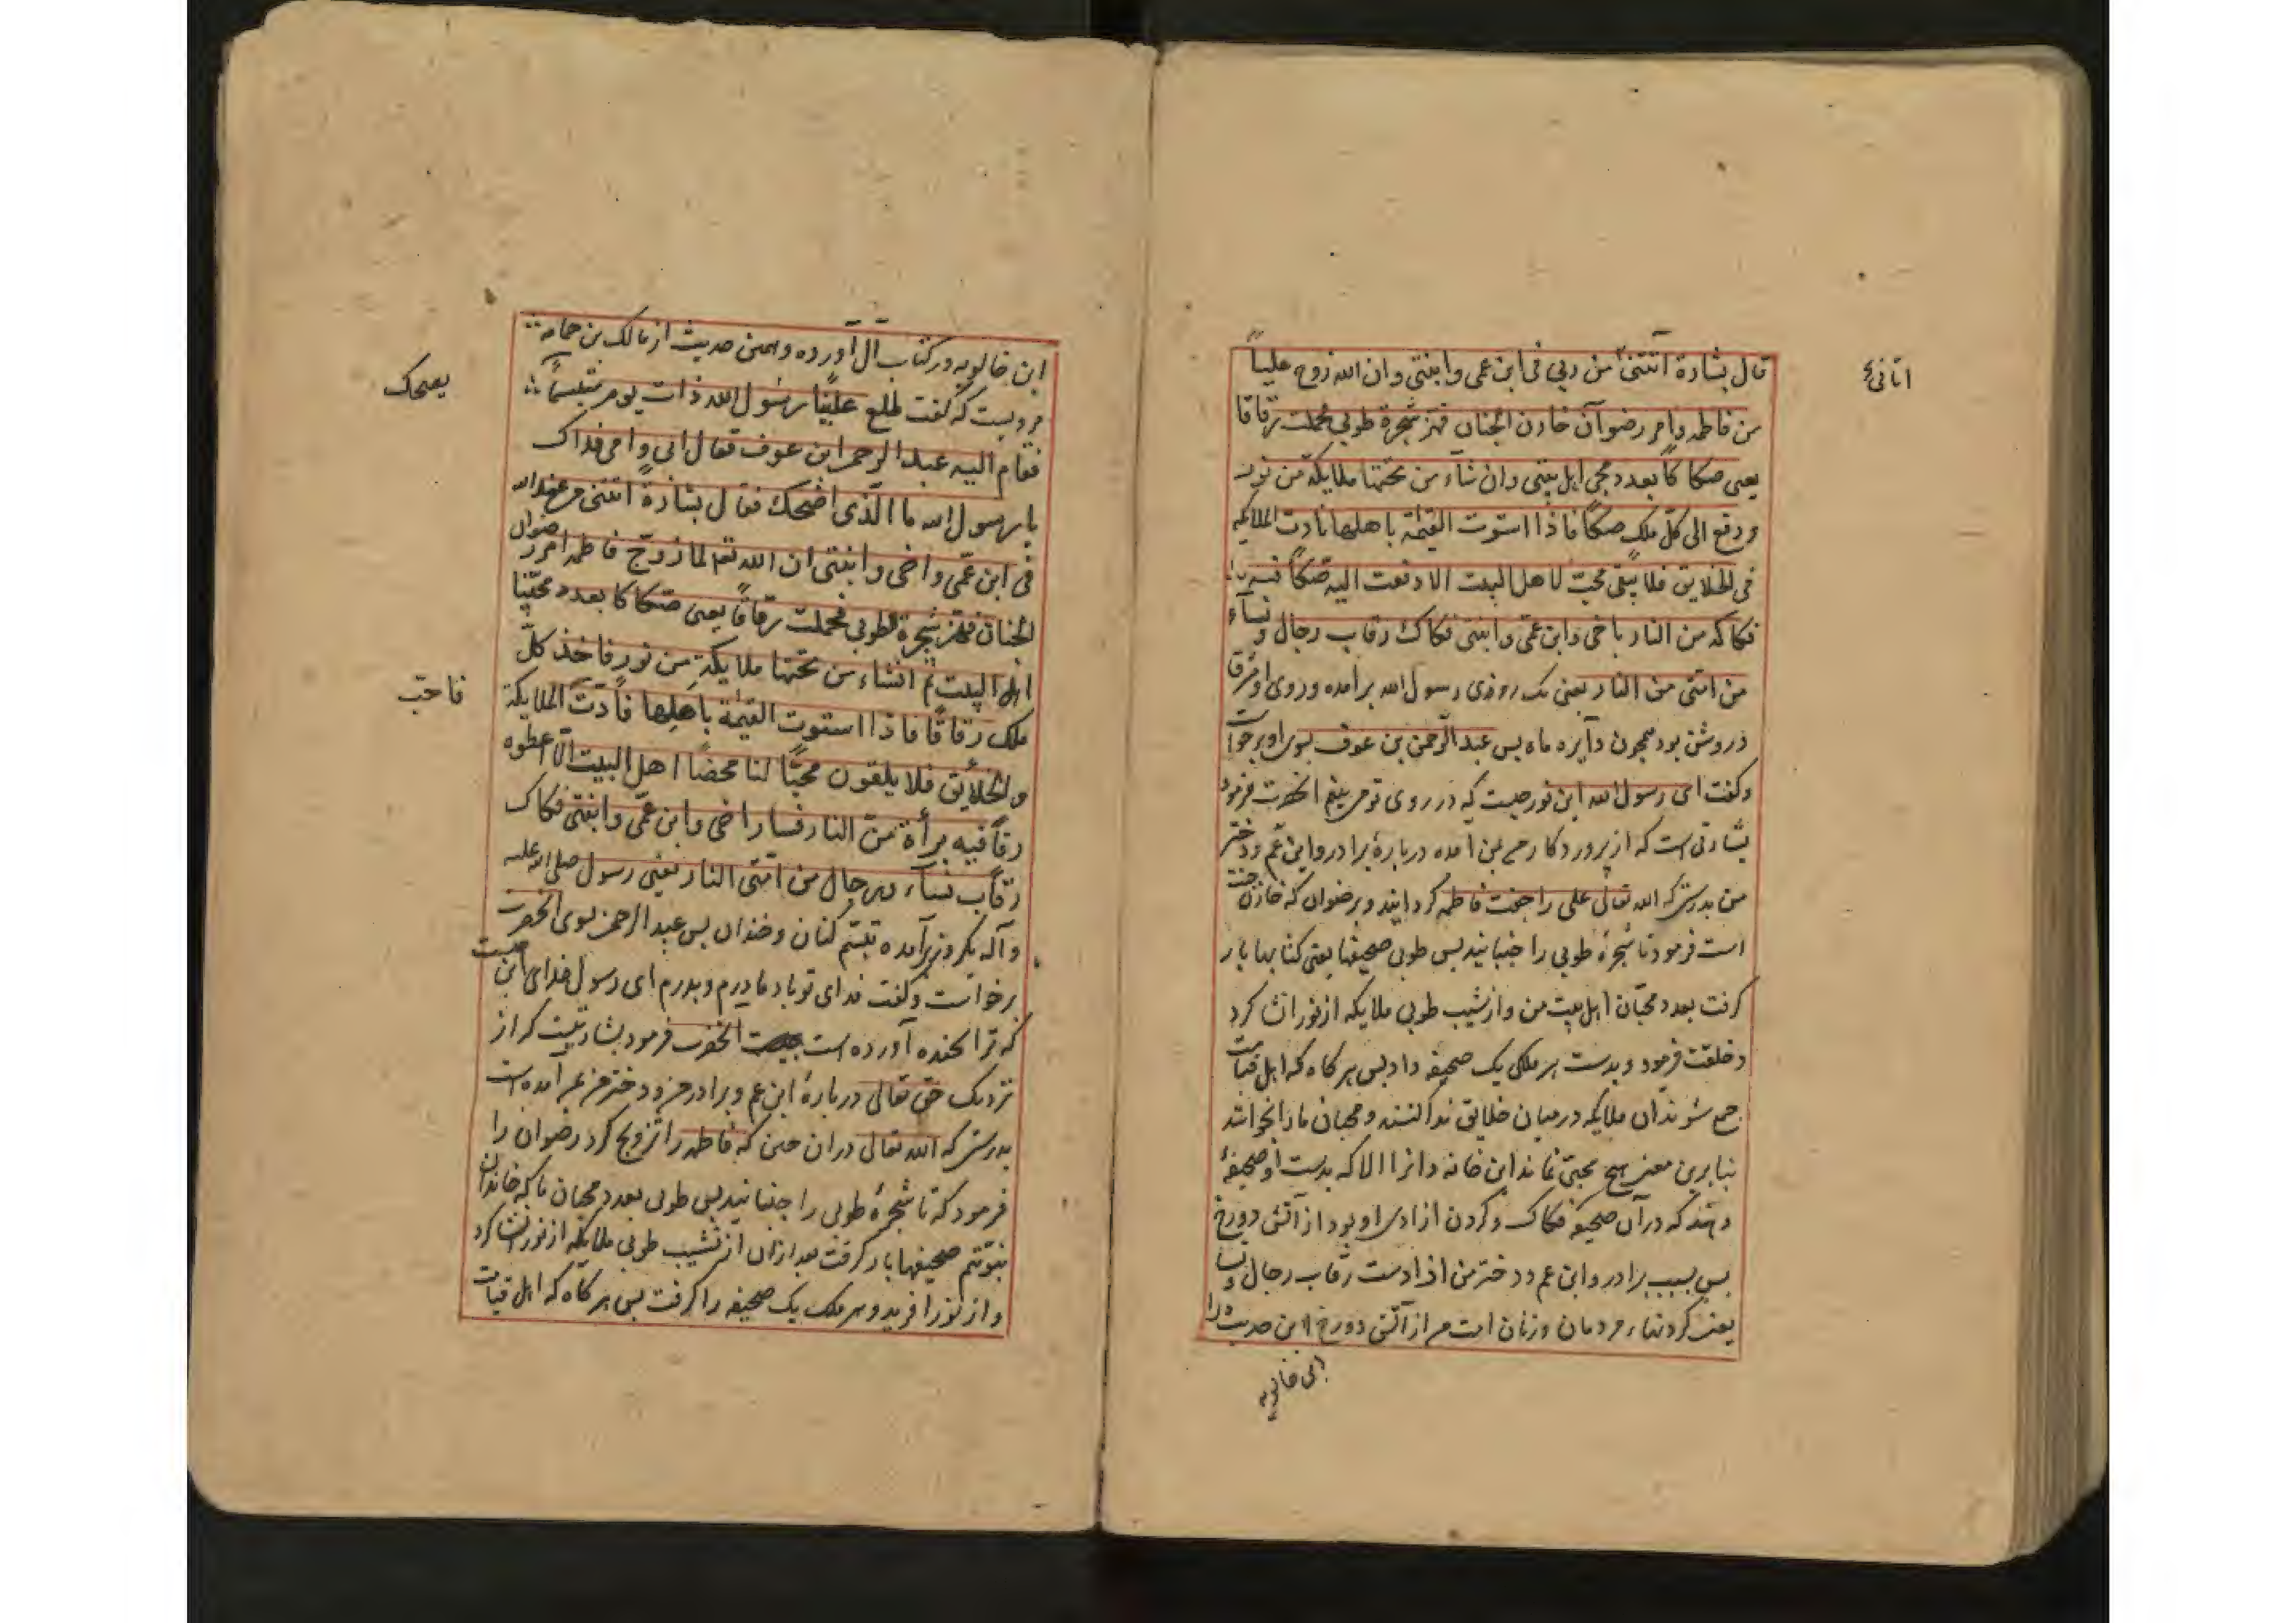 قال بشارة اتتنی من ربی فی ابن عمی وابنتی وان الله زوج علیاً
اتانی
من فاطمه وامر رضوان خازن الجنان فهز شجرة طوبی فحملت رقاقا
یعنی صکاکاً بعدد محبی اهل بیتی وان شاء من تحتها ملایکة من نور
ودفع الی کل ملک صکاً فاذا استوت القیمة باهلها نادت الملایکه
فی الخلایق فلا یبقی محب لاهل البیت الا دفعت الیه صکاً فیه
فکاکه من النار باخی وابن عمی وابنتی فکاک رقاب رجال ونسآء
من امتی من النار یعنی یک روزی رسول الله برامده وروی او مشرق
وروشن بود همچون دایره ماه پس عبد الرحمن بن عوف بسوی او برخواست
وکفت ای رسول الله این نور چیست که در روی تو می بینم انحضرت فرمود
بشارتی است که از پروردکار من بمن امده دربارهٔ برادر وابن عم ودختر
من بدرستی که الله تعالی علی را جفت فاطمه کردانید وبرضوان که خازن جنت
است فرمود تا شجرهٔ طوبی را جنبانید پس طوبی صحیفها یعنی کتابها بار
کرفت بعدد محبان اهل بیت من واز شیب طوبی ملایکه از نور انشا کرد
وخلقت فرمود وبدست هر ملکی یک صحیفه داد پس هر کاه که اهل قیامت
جمع شوند آن ملایکه در میان خلایق ندا کنند ومحبان ما را بخوانند
بنابرین معنی هیچ محبی نماند این خانه دانرا الا که بدست او صحیفهٔ
دهند که در آن صحیفه فکاک وکردن ازادی او بود از آتش دوزخ
پس بسبب برادر وابن عم ودختر من ازادست رقاب رجال ونسا
یعنی کردنهاء مردمان وزنان امت من از آتش دوزخ این حدیث را
ابن خالویه
ابن خالویه در کتاب ال آورده وهمین حدیث از مالک بن حمامه
مرویست که کفت طلع علینا رسول الله ذات یوم متبسماً
یضحک
فقام الیه عبد الرحمن ابن عوف فقال ابی وامی فداک
یا رسول الله ما الذی اضحکک فقال بشارة اتتنی من عند الله
فی ابن عمی واخی وابنتی ان الله تعم لما زوج فاطمه امر رضوان
الجنان فهز شجرة طوبی فحملت رقاقاً یعنی صکاکا بعدد محبینا
اهل البیت ثم انشاء من تحتها ملایکة من نور فاخذ کل
ملک رقاقاً فاذا استوت القیمة باهلها نادت الملایکة
فاحب
والخلایق فلا یلقون محباً لنا محضاً اهل البیت الا اعطوه
رقاً فیه برأة من النار فسار اخی وابن عمی وابنتی فکاک
رقاب نسآء ورجال من امتی النار یعنی رسول صلی الله علیه
وآله یکروز برآمده تبسم کنان وخندان پس عبد الرحمن بسوی انحضرت
برخواست وکفت فدای تو باد مادرم وپدرم ای رسول خدای این چیست
که ترا بخنده آورده است انحضرت فرمود بشارتیست که از
نزدیک حق تعالی دربارهٔ ابن عم وبرادر من ودختر من بمن امده است
بدرستی که الله تعالی دران حین که فاطمه را تزویج کرد رضوان را
فرمود که تا شجرهٔ طوبی را جنبانید پس طوبی بعدد محبان ما که خاندان
نبوتیم صحیفها بار کرفت بعد ازان از نشیب طوبی ملایکه از نور انشا کرد
واز نور افرید وهر ملک یک صحیفه را کرفت پس هر کاه که اهل قیامت